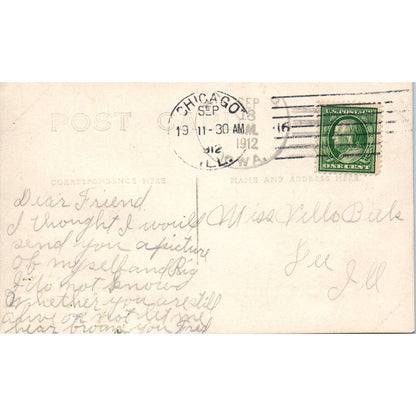 CHICAGO
SEP
19 11-30 AM
1912
ILL.
SEP
18
M.
1912
WA.
16
U.S. POSTAGE
ONE CENT
POST C
CORRESPONDENCE HERE
NAME AND ADDRESS HERE
Dear Friend
I thought I would
send you a picture
of myself and Rig
I do not know
whether you are still
alive or not let me
hear from you Fred
Miss Vello
Lee
Ill